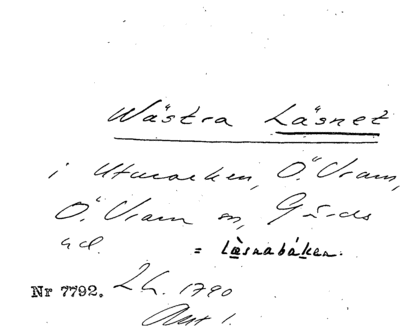 Wästra Läsnet
i Utmarken, Ö. Vram,
Ö. Vram sn, Gärds
hd. = Læsnabáken.
Nr 7792. LH. 1790
Akt 1.